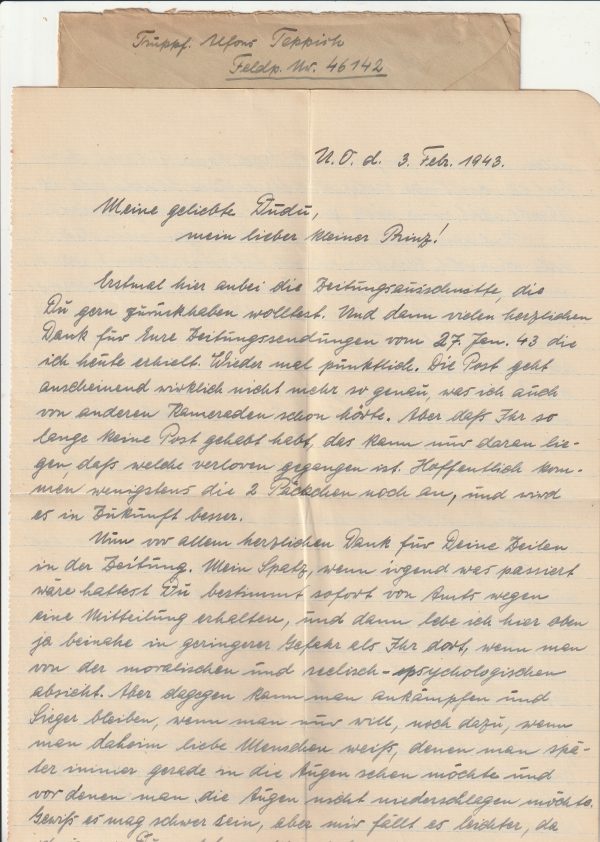 Truppf. Alfons Teppich
Feldp. Nr. 46142
U. O. d. 3. Febr. 1943.
Meine geliebte Dudu,
mein lieber kleiner Prinz!
Erstmal hier anbei die Zeitungsausschnitte, die
Du gern zurückhaben wolltest. Und dann vielen herzlichen
Dank für Eure Zeitungssendungen vom 27. Jan. 43 die
ich heute erhielt. Wieder mal pünktlich. Die Post geht
anscheinend wirklich nicht mehr so genau, was ich auch
von anderen Kameraden schon hörte. Aber daß Ihr so
lange keine Post gehabt habt, das kann nur daran lie-
gen, daß welche verloren gegangen ist. Hoffentlich kom-
men wenigstens die 2 Päckchen noch an, und wird
es in Zukunft besser.
Nun vor allem herzlichen Dank für Deine Zeilen
in der Zeitung. Mein Spatz, wenn irgend was passiert
wäre hättest Du bestimmt sofort von Amts wegen
eine Mitteilung erhalten, und dann lebe ich hier oben
ja beinahe in geringerer Gefahr als Ihr dort, wenn man
von der moralischen und seelisch-psychologischen
absieht. Aber dagegen kann man ankämpfen und
Sieger bleiben, wenn man nur will, noch dazu, wenn
man daheim liebe Menschen weiß, denen man spä-
ter immer gerade in die Augen sehen möchte und
vor denen man die Augen nicht niederschlagen möchte.
Gewiß es mag schwer sein, aber mir fällt es leichter, da